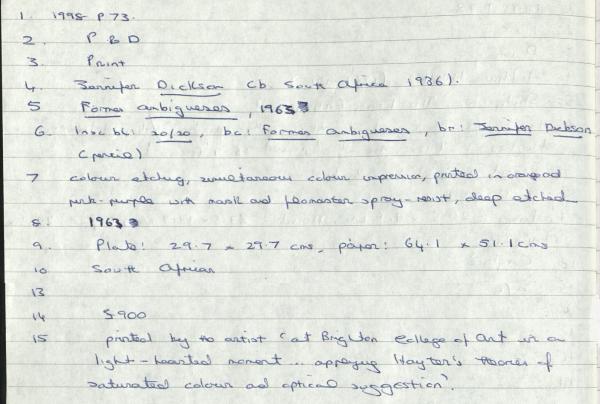 1. 1998 P 73.
2. P B D
3. Print
4. Jennifer Dickson (b. South Africa 1936).
5 Formes ambigueses, 1963
6. Insc bl: 20/20, bc: Formes ambigueses, br: Jennifer Dickson
(pencil)
7 colour etching, simultaneous colour impression, printed in orange and
pink-purple with mask and flomaster spray-resist, deep etched
8. 1963
9. Plate: 29.7 x 29.7 cms, paper: 64.1 x 51.1 cms
10 South African
13
14 $900
15 printed by the artist 'at Brighton College of Art in a
light-hearted moment... applying Hayter's theories of
saturated colour and optical suggestion'.